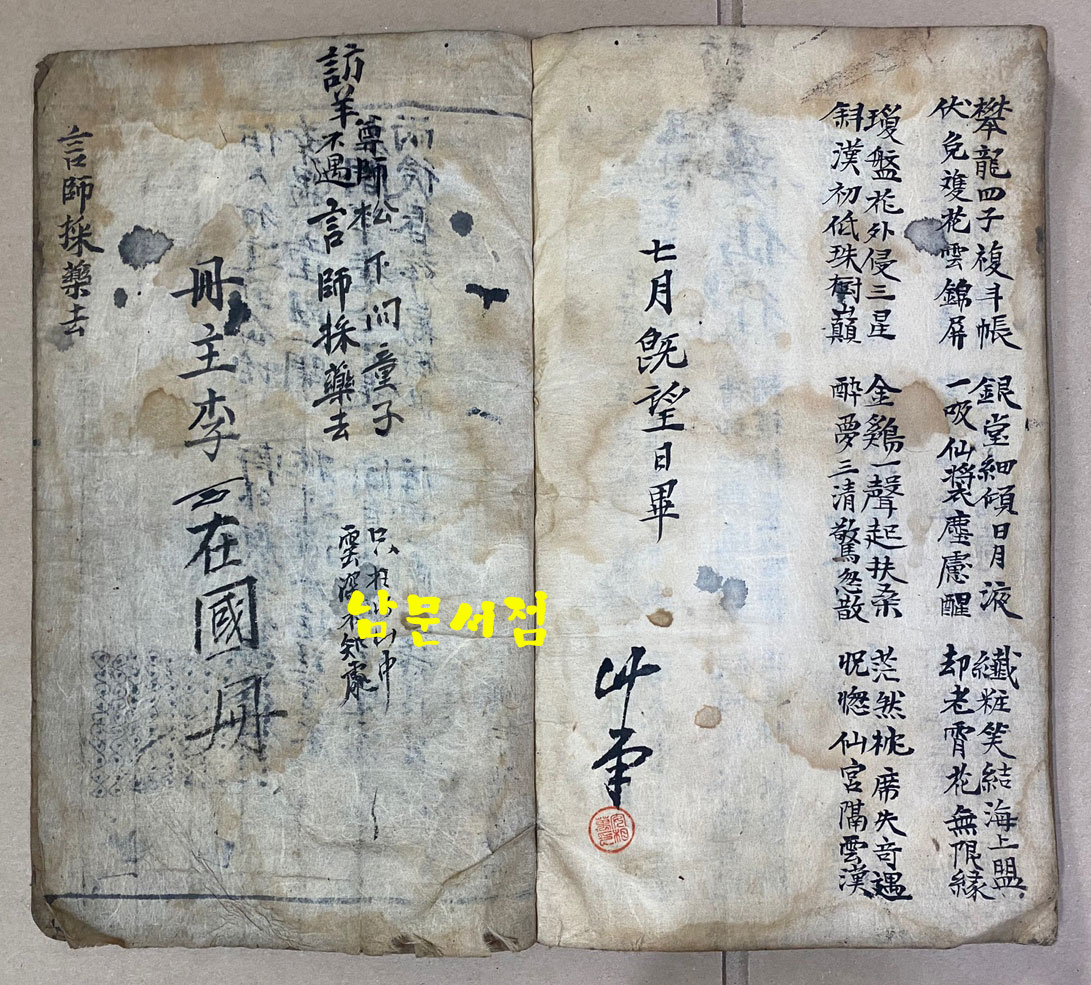 攀龍四子複斗帳 銀堂細傾日月液 纖粧笑結海上盟
伏免複花雲錦屏 一吸仙漿塵慮醒 却老霄花無限緣
瓊盤花外侵三星 金鷄一聲起扶桑 茫然枕席失奇遇
斜漢初低珠樹巓 醉夢三清驚忽散 怳惚仙宮隔雲漢
七月旣望日畢
訪羊尊師不遇
松下問童子
言師採藥去
只在此山中
雲深不知處
冊主李在國冊
言師採藥去
남문서점